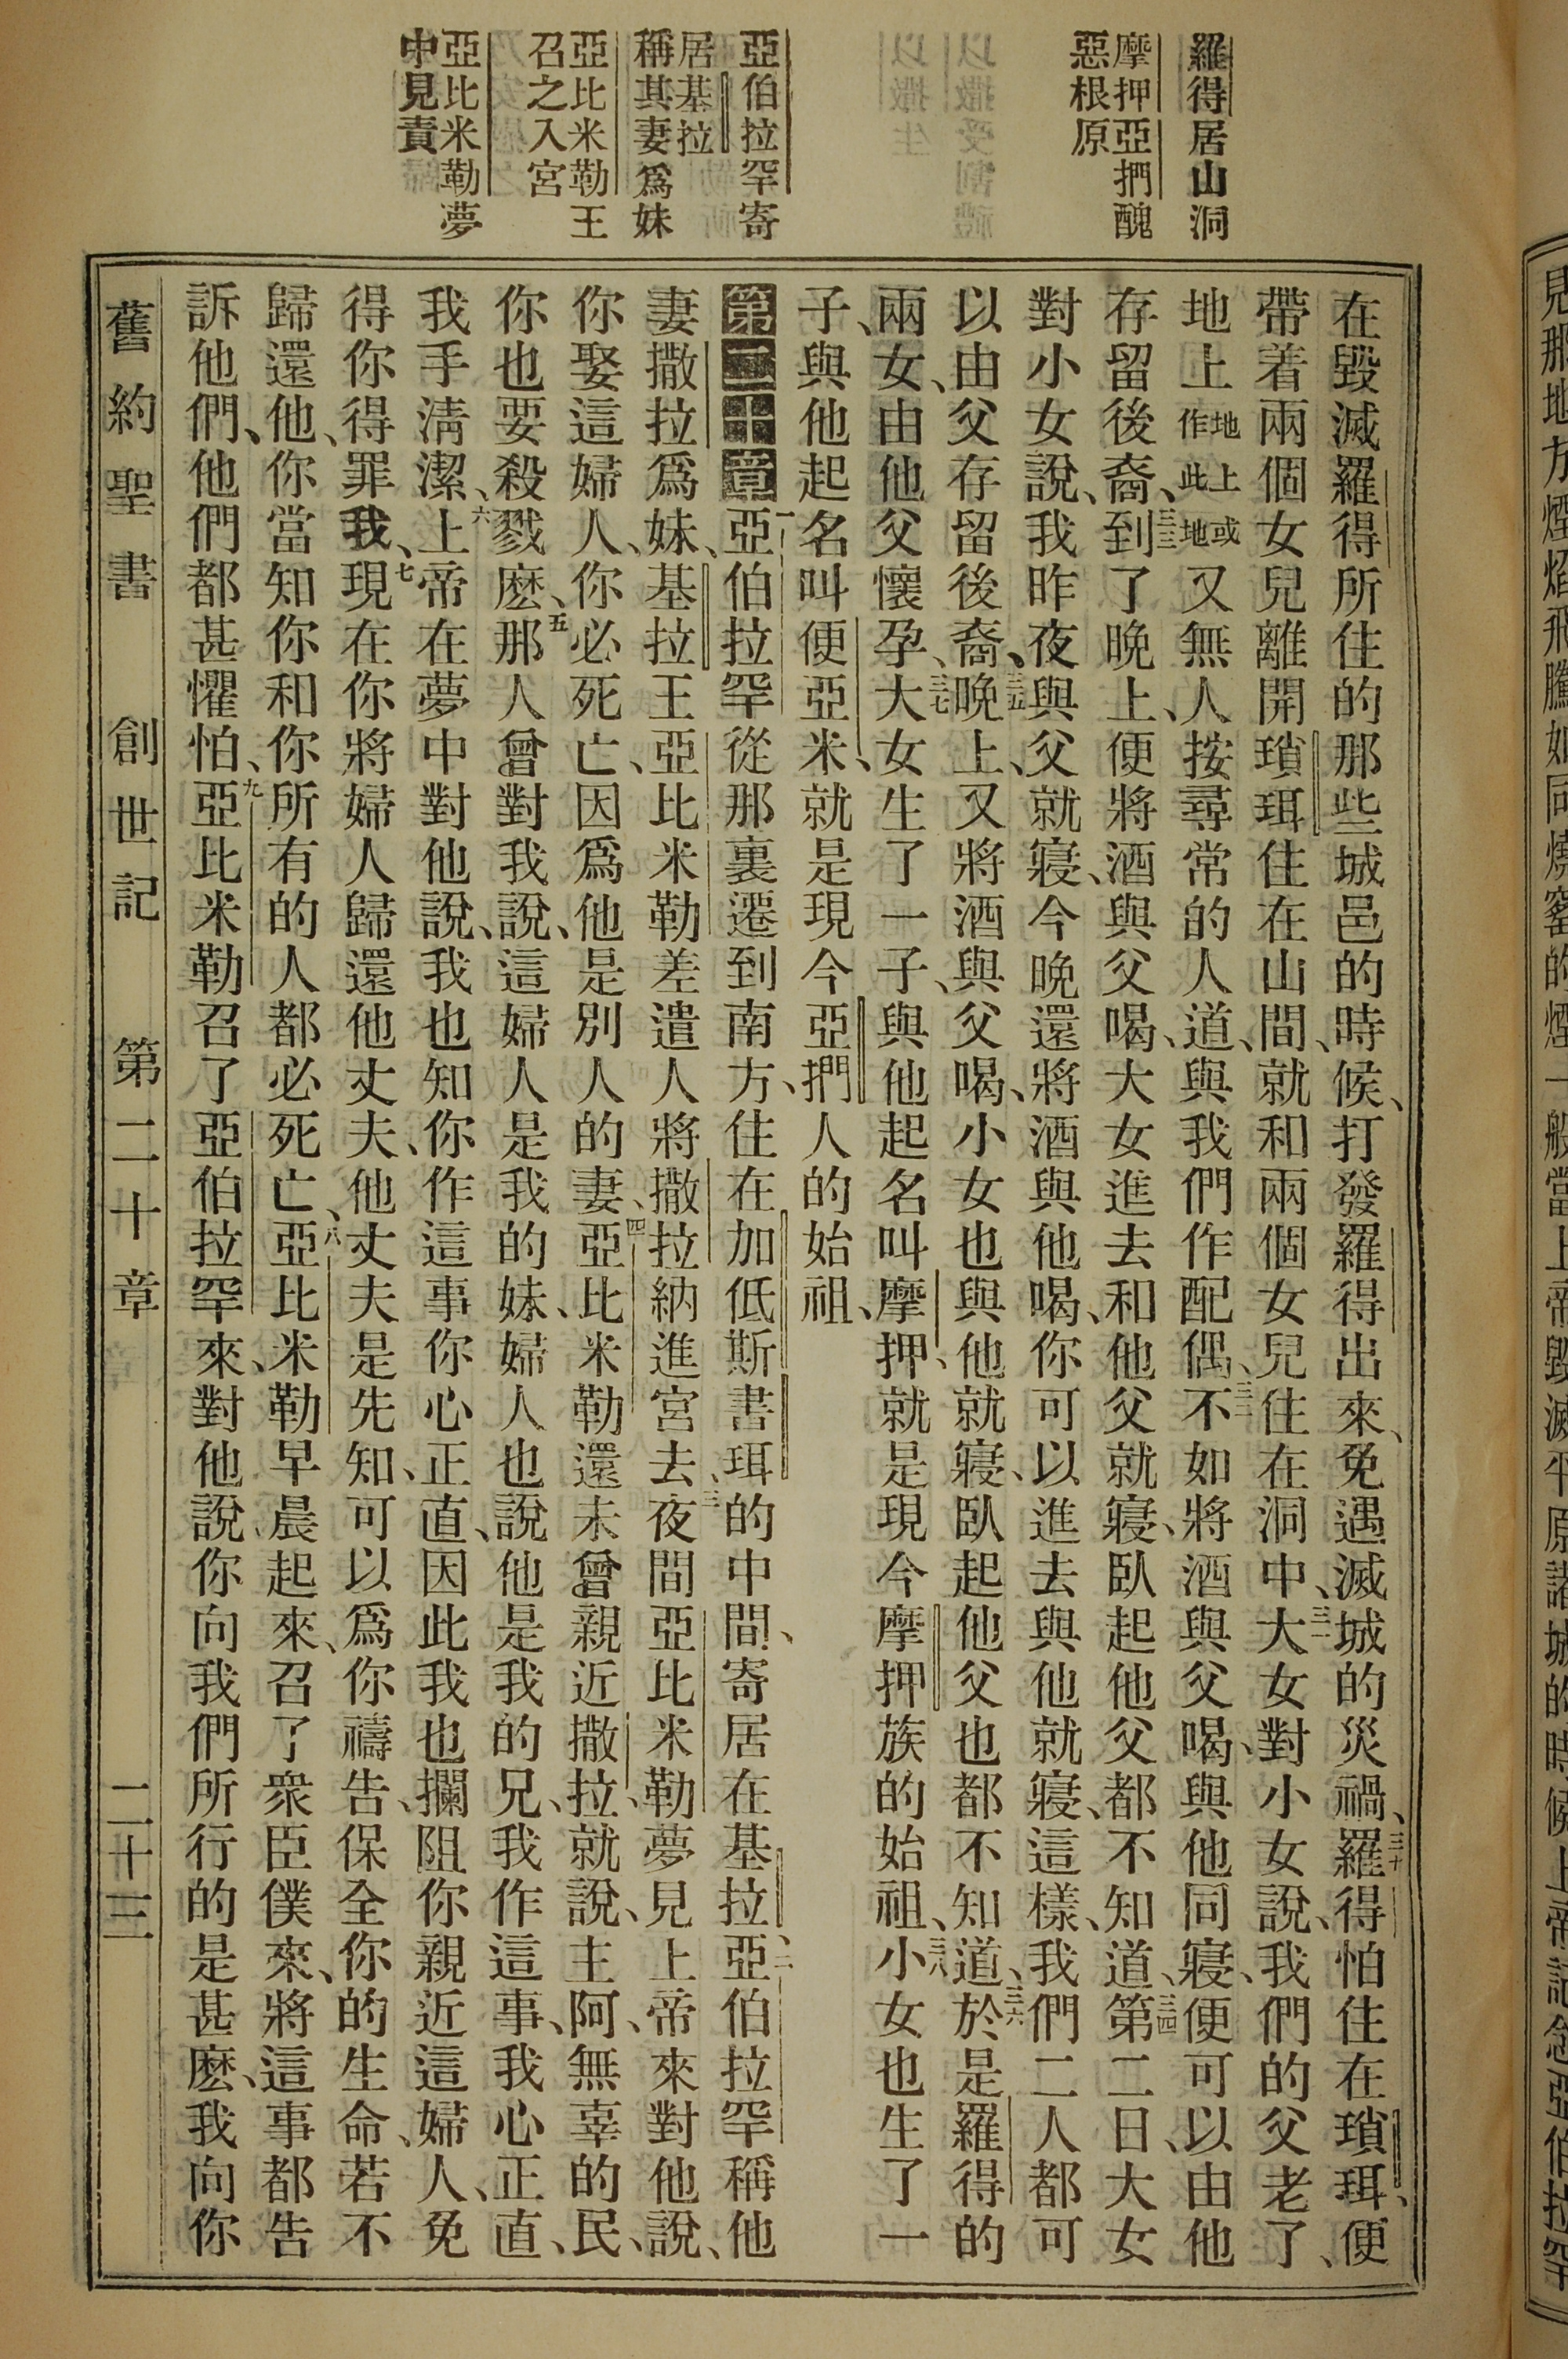 羅得居山洞
摩押亞捫醜
惡根原
亞伯拉罕寄
居基拉
稱其妻爲妹
亞比米勒王
召之入宮
亞比米勒夢
中見責
在毀滅羅得所住的那些城邑的時候、打發羅得出來、免遇滅城的災禍、三十羅得怕住在瑣珥、便
帶着兩個女兒離開瑣珥住在山間、就和兩個女兒住在洞中、三一大女對小女說、我們的父老了、
地上地上或作此地又無人按尋常的人道、與我們作配偶、三二不如將酒與父喝、與他同寢、便可以由他
存留後裔、三三到了晚上、便將酒與父喝、大女進去和他父就寢、臥起他父都不知道、三四第二日、大女
對小女說、我昨夜與父就寢、今晚還將酒與他喝、你可以進去與他就寢、這樣、我們二人都可
以由父存留後裔、三五晚上、又將酒與父喝、小女也與他就寢、臥起他父也都不知道、三六於是羅得的
兩女、由他父懷孕、三七大女生了一子、與他起名叫摩押、就是現今摩押族的始祖、三八小女也生了一
子、與他起名叫便亞米、就是現今亞捫人的始祖、
第二十章一亞伯拉罕從那裏遷到南方、住在加低斯書珥的中間、寄居在基拉、二亞伯拉罕稱他
妻撒拉爲妹、基拉王亞比米勒差遣人將撒拉納進宮去、三夜間亞比米勒夢見上帝來對他說、
你娶這婦人、你必死亡、因爲他是別人的妻、四亞比米勒還未曾親近撒拉、就說、主阿、無辜的民、
你也要殺戮麽、五那人曾對我說、這婦人是我的妹、婦人也說他是我的兄、我作這事、我心正直、
我手淸潔、六上帝在夢中對他說、我也知你作這事你心正直、因此我也攔阻你親近這婦人、免
得你得罪我、七現在你將婦人歸還他丈夫、他丈夫是先知、可以爲你禱告、保全你的生命、若不
歸還他、你當知你和你所有的人都必死亡、八亞比米勒早晨起來、召了衆臣僕來、將這事都告
訴他們、他們都甚懼怕、九亞比米勒召了亞伯拉罕來、對他說、你向我們所行的是甚麽、我向你
舊約聖書 創世記 第二十章 二十三